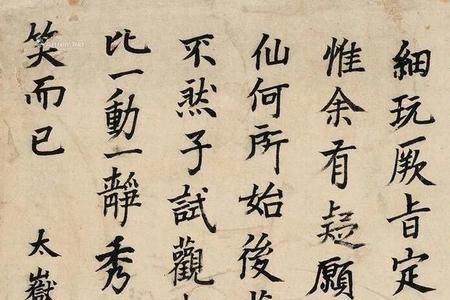 細玩厥旨定
惟余有疑願
仙何所始後
不然子試觀
比一動一靜秀
笑而已
太嶽